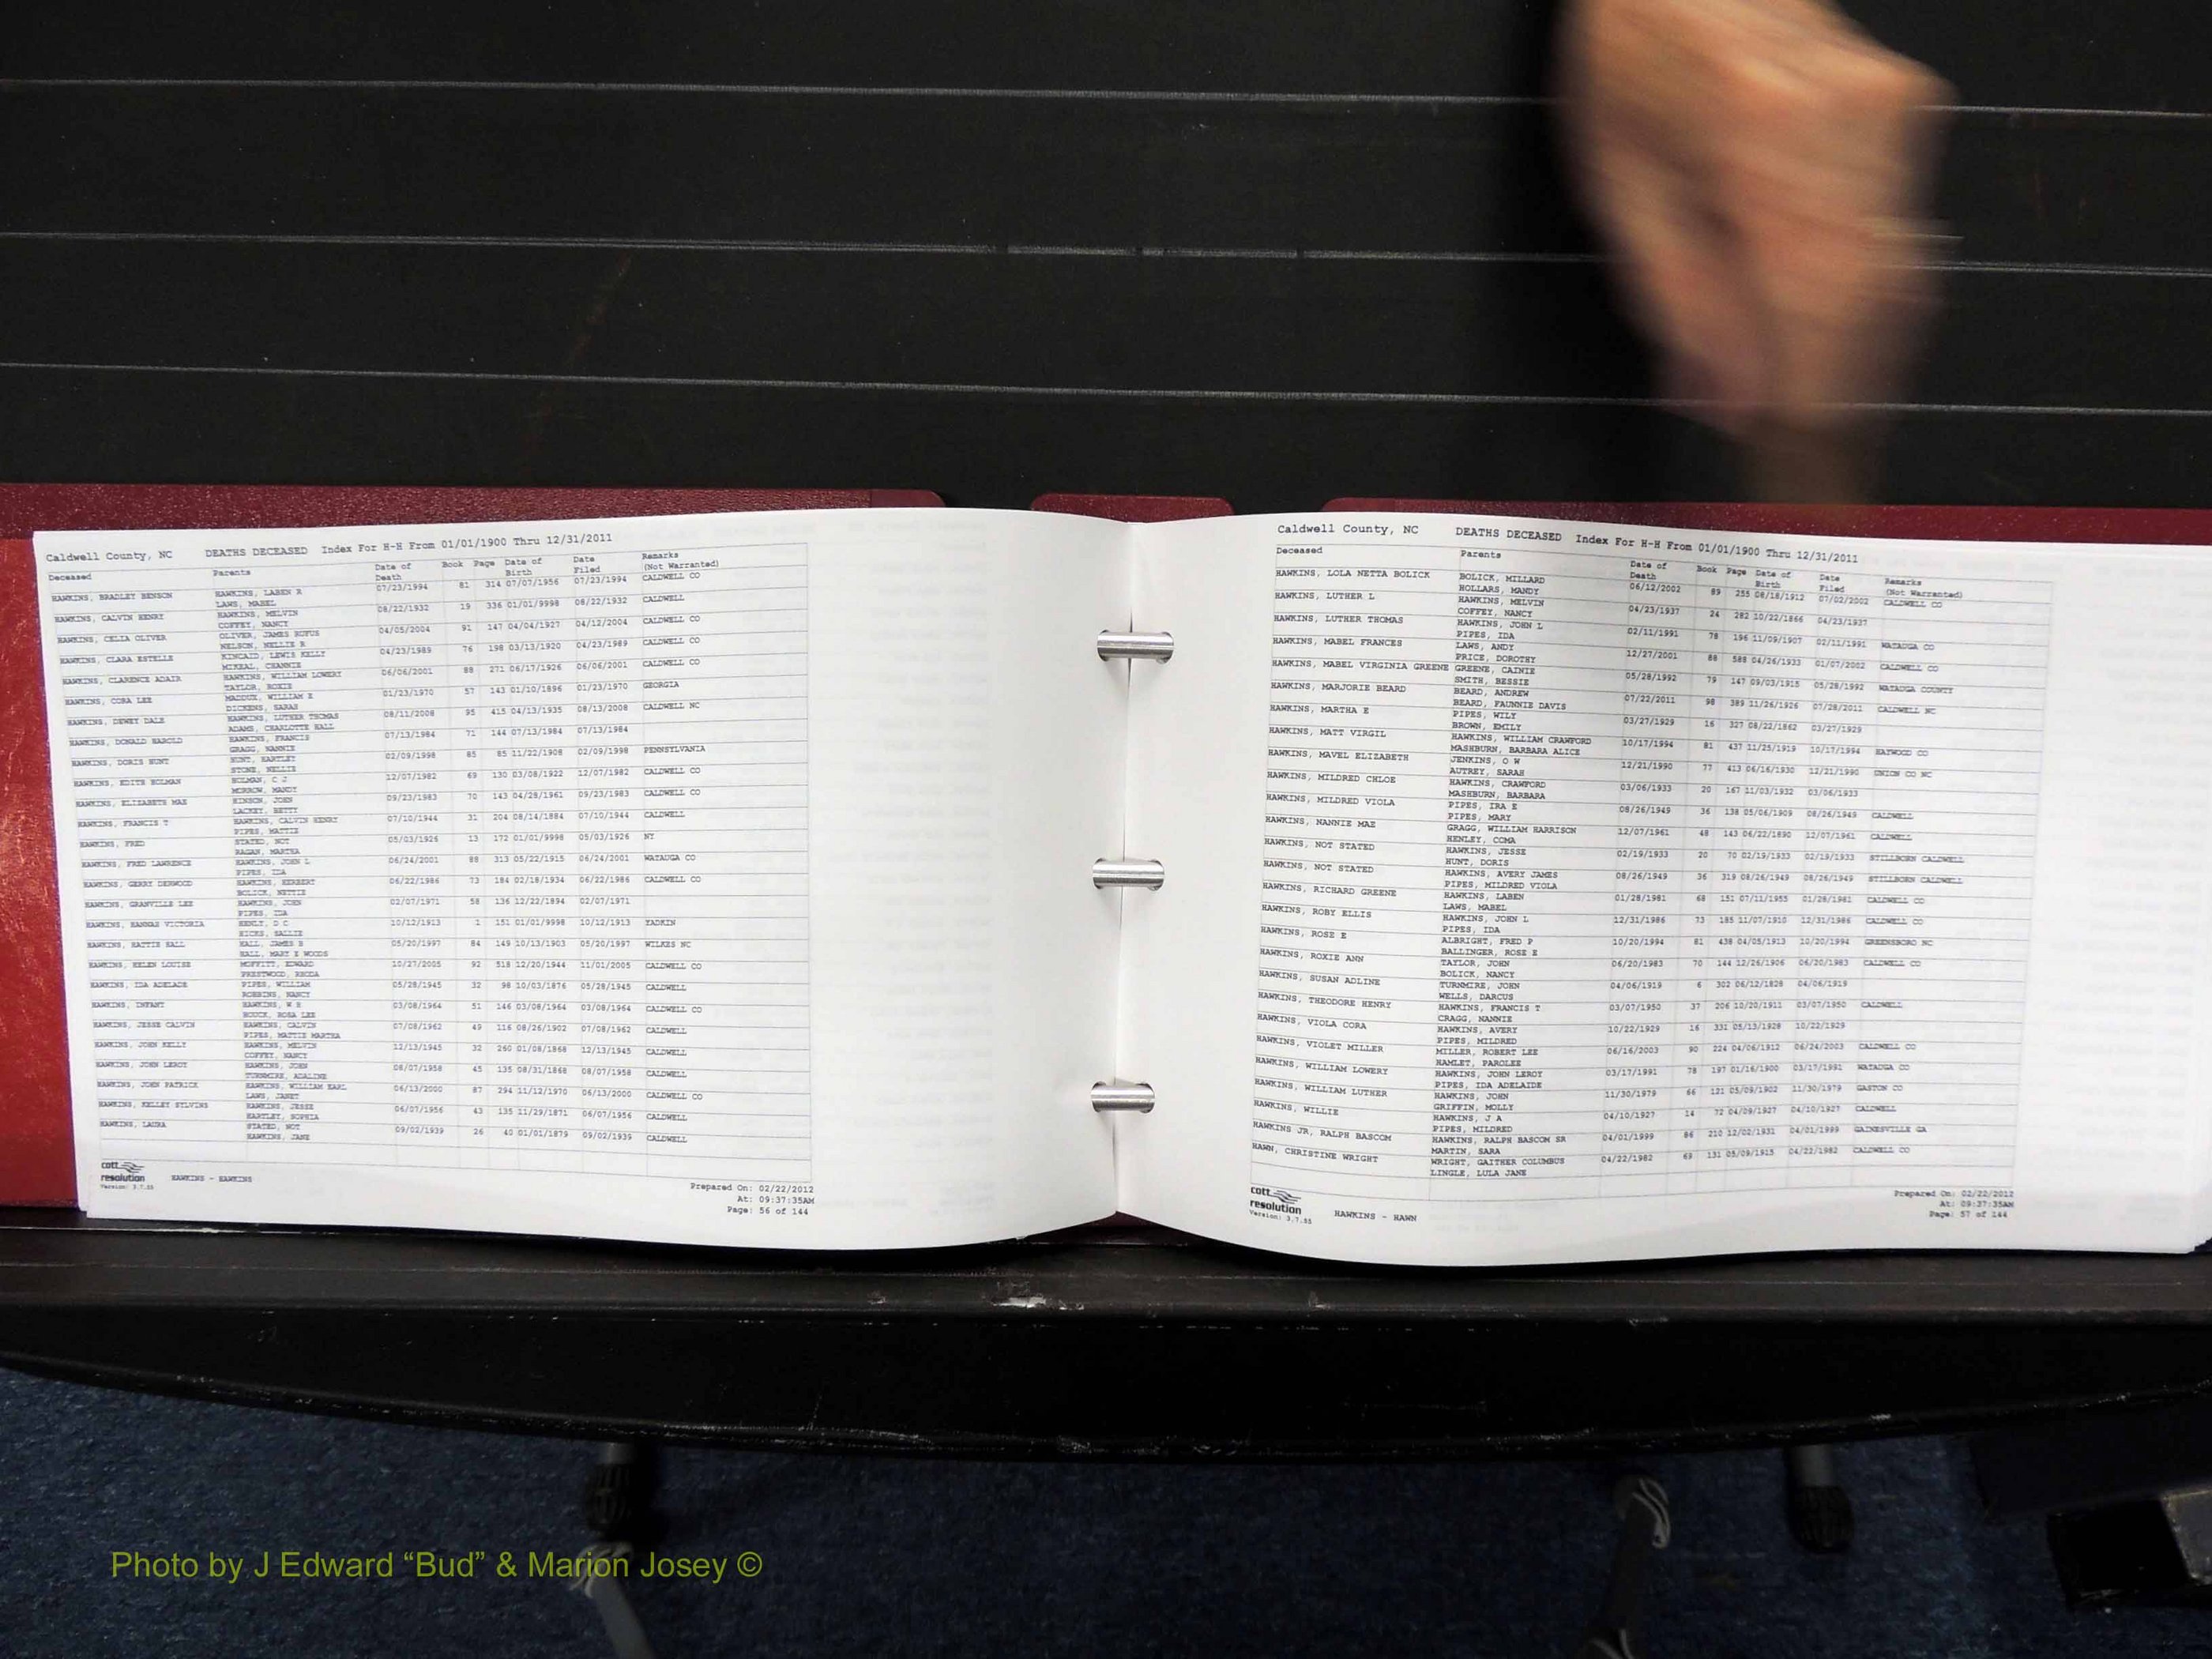 Caldwell County, NC DEATHS DECEASED Index For H-H From 01/01/1900 Thru 12/31/2011
Deceased Parents Date of Death Book Page Date of Birth Date Filed Remarks (Not Warranted)
HAWKINS, BRADLEY BENSON HAWKINS, LABEN R 07/23/1994 81 314 07/07/1956 07/23/1994 CALDWELL CO
LAWS, MABEL
HAWKINS, CALVIN HENRY HAWKINS, MELVIN 08/22/1932 19 336 01/01/9998 08/22/1932 CALDWELL
COFFEY, NANCY
HAWKINS, CELIA OLIVER OLIVER, JAMES RUFUS 04/05/2004 91 147 04/04/1927 04/12/2004 CALDWELL CO
NELSON, NELLIE R
HAWKINS, CLARA ESTELLE KINCAID, LEWIS KELLY 04/23/1989 76 198 03/13/1920 04/23/1989 CALDWELL CO
MIKEAL, CHANNIE
HAWKINS, CLARENCE ADAIR HAWKINS, WILLIAM LOWERY 06/06/2001 88 271 06/17/1926 06/06/2001 CALDWELL CO
TAYLOR, ROXIE
HAWKINS, CORA LEE MADDUX, WILLIAM E 01/23/1970 57 143 01/10/1896 01/23/1970 GEORGIA
DICKENS, SARAH
HAWKINS, DEWEY DALE HAWKINS, LUTHER THOMAS 08/11/2008 95 415 04/13/1935 08/13/2008 CALDWELL NC
ADAMS, CHARLOTTE HALL
HAWKINS, DONALD HAROLD HAWKINS, FRANCIS 07/13/1984 71 144 07/13/1984 07/13/1984
GRAGG, NANNIE
HAWKINS, DORIS HUNT HUNT, HARTLEY 02/09/1998 85 85 11/22/1908 02/09/1998 PENNSYLVANIA
STONE, NELLIE
HAWKINS, EDITH HOLMAN HOLMAN, C J 12/07/1982 69 130 03/08/1922 12/07/1982 CALDWELL CO
MORROW, MANDY
HAWKINS, ELIZABETH MAE HINSON, JOHN 09/23/1983 70 143 04/28/1961 09/23/1983 CALDWELL CO
LACKEY, BETTY
HAWKINS, FRANCIS T HAWKINS, CALVIN HENRY 07/10/1944 31 204 08/14/1884 07/10/1944 CALDWELL
PIPES, MATTIE
HAWKINS, FRED STATED, NOT 05/03/1926 13 172 01/01/9998 05/03/1926 NY
RAGAN, MARTHA
HAWKINS, FRED LAWRENCE HAWKINS, JOHN L 06/24/2001 88 313 05/22/1915 06/24/2001 WATAUGA CO
PIPES, IDA
HAWKINS, GERRY DERWOOD HAWKINS, HERBERT 06/22/1986 73 184 02/18/1934 06/22/1986 CALDWELL CO
BOLICK, NETTIE
HAWKINS, GRANVILLE LEE HAWKINS, JOHN 02/07/1971 58 136 12/22/1894 02/07/1971
PIPES, IDA
HAWKINS, HANNAH VICTORIA HENLY, D C 10/12/1913 1 151 01/01/9998 10/12/1913 YADKIN
HICKS, SALLIE
HAWKINS, HATTIE HALL HALL, JAMES B 05/20/1997 84 149 10/13/1903 05/20/1997 WILKES NC
HALL, MARY E WOODS
HAWKINS, HELEN LOUISE MOFFITT, EDWARD 10/27/2005 92 518 12/20/1944 11/01/2005 CALDWELL CO
PRESTWOOD, RECDA
HAWKINS, IDA ADELADE PIPES, WILLIAM 05/28/1945 32 98 10/03/1876 05/28/1945 CALDWELL
ROBBINS, NANCY
HAWKINS, INFANT HAWKINS, W H 03/08/1964 51 146 03/08/1964 03/08/1964 CALDWELL CO
HOUCK, ROSA LEE
HAWKINS, JESSE CALVIN HAWKINS, CALVIN 07/08/1962 49 116 08/26/1902 07/08/1962 CALDWELL
PIPES, MATTIE MARTHA
HAWKINS, JOHN KELLY HAWKINS, MELVIN 12/13/1945 32 260 01/08/1868 12/13/1945 CALDWELL
COFFEY, NANCY
HAWKINS, JOHN LEROY HAWKINS, JOHN 08/07/1958 45 135 08/31/1868 08/07/1958 CALDWELL
TURNMIRE, ADALINE
HAWKINS, JOHN PATRICK HAWKINS, WILLIAM EARL 06/13/2000 87 294 11/12/1970 06/13/2000 CALDWELL CO
LAWS, JANET
HAWKINS, KELLEY SYLVINS HAWKINS, JESSE 06/07/1956 43 135 11/29/1871 06/07/1956 CALDWELL
HARTLEY, SOPHIA
HAWKINS, LAURA STATED, NOT 09/02/1939 26 40 01/01/1879 09/02/1939 CALDWELL
HAWKINS, JANE
cott
resolution
Version: 3.7.55
HAWKINS - HAWKINS
Prepared On: 02/22/2012
At: 09:37:35AM
Page: 56 of 144
Caldwell County, NC DEATHS DECEASED Index For H-H From 01/01/1900 Thru 12/31/2011
Deceased Parents Date of Death Book Page Date of Birth Date Filed Remarks (Not Warranted)
HAWKINS, LOLA NETTA BOLICK BOLICK, MILLARD 06/12/2002 89 255 08/18/1912 07/02/2002 CALDWELL CO
HOLLARS, MANDY
HAWKINS, LUTHER L HAWKINS, MELVIN 04/23/1937 24 282 10/22/1866 04/23/1937
COFFEY, NANCY
HAWKINS, LUTHER THOMAS HAWKINS, JOHN L 02/11/1991 78 196 11/09/1907 02/11/1991 WATAUGA CO
PIPES, IDA
HAWKINS, MABEL FRANCES LAWS, ANDY 12/27/2001 88 588 04/26/1933 01/07/2002 CALDWELL CO
PRICE, DOROTHY
HAWKINS, MABEL VIRGINIA GREENE GREENE, CAINIE 05/28/1992 79 147 09/03/1915 05/28/1992 WATAUGA COUNTY
SMITH, BESSIE
HAWKINS, MARJORIE BEARD BEARD, ANDREW 07/22/2011 98 389 11/26/1926 07/28/2011 CALDWELL NC
BEARD, FAUNNIE DAVIS
HAWKINS, MARTHA E PIPES, WILY 03/27/1929 16 327 08/22/1862 03/27/1929
BROWN, EMILY
HAWKINS, MATT VIRGIL HAWKINS, WILLIAM CRAWFORD 10/17/1994 81 437 11/25/1919 10/17/1994 HAYWOOD CO
MASHBURN, BARBARA ALICE
HAWKINS, MAVEL ELIZABETH JENKINS, O W 12/21/1990 77 413 06/16/1930 12/21/1990 UNION CO NC
AUTREY, SARAH
HAWKINS, MILDRED CHLOE HAWKINS, CRAWFORD 03/06/1933 20 167 11/03/1932 03/06/1933
MASHBURN, BARBARA
HAWKINS, MILDRED VIOLA PIPES, IRA E 08/26/1949 36 138 05/06/1909 08/26/1949 CALDWELL
PIPES, MARY
HAWKINS, NANNIE MAE GRAGG, WILLIAM HARRISON 12/07/1961 48 143 06/22/1890 12/07/1961 CALDWELL
HENLEY, COMA
HAWKINS, NOT STATED HAWKINS, JESSE 02/19/1933 20 70 02/19/1933 02/19/1933 STILLBORN CALDWELL
HUNT, DORIS
HAWKINS, NOT STATED HAWKINS, AVERY JAMES 08/26/1949 36 319 08/26/1949 08/26/1949 STILLBORN CALDWELL
PIPES, MILDRED VIOLA
HAWKINS, RICHARD GREENE HAWKINS, LABEN 01/28/1981 68 151 07/11/1955 01/28/1981 CALDWELL CO
LAWS, MABEL
HAWKINS, ROBY ELLIS HAWKINS, JOHN L 12/31/1986 73 185 11/07/1910 12/31/1986 CALDWELL CO
PIPES, IDA
HAWKINS, ROSE E ALBRIGHT, FRED P 10/20/1994 81 438 04/05/1913 10/20/1994 GREENSBORO NC
BALLINGER, ROSE E
HAWKINS, ROXIE ANN TAYLOR, JOHN 06/20/1983 70 144 12/26/1906 06/20/1983 CALDWELL CO
BOLICK, NANCY
HAWKINS, SUSAN ADLINE TURNMIRE, JOHN 04/06/1919 6 302 06/12/1828 04/06/1919
WELLS, DARCUS
HAWKINS, THEODORE HENRY HAWKINS, FRANCIS T 03/07/1950 37 206 10/20/1911 03/07/1950 CALDWELL
CRAGG, NANNIE
HAWKINS, VIOLA CORA HAWKINS, AVERY 10/22/1929 16 331 05/13/1928 10/22/1929
PIPES, MILDRED
HAWKINS, VIOLET MILLER MILLER, ROBERT LEE 06/16/2003 90 224 04/06/1912 06/24/2003 CALDWELL CO
HAMLET, PAROLEE
HAWKINS, WILLIAM LOWERY HAWKINS, JOHN LEROY 03/17/1991 78 197 01/16/1900 03/17/1991 WATAUGA CO
PIPES, IDA ADELAIDE
HAWKINS, WILLIAM LUTHER HAWKINS, JOHN 11/30/1979 66 121 05/09/1902 11/30/1979 GASTON CO
GRIFFIN, MOLLY
HAWKINS, WILLIE HAWKINS, J A 04/10/1927 14 72 04/09/1927 04/10/1927 CALDWELL
PIPES, MILDRED
HAWKINS JR, RALPH BASCOM HAWKINS, RALPH BASCOM SR 04/01/1999 86 210 12/02/1931 04/01/1999 GAINESVILLE GA
MARTIN, SARA
HAWN, CHRISTINE WRIGHT WRIGHT, GAITHER COLUMBUS 04/22/1982 69 131 05/09/1915 04/22/1982 CALDWELL CO
LINGLE, LULA JANE
cott
resolution
Version: 3.7.55
HAWKINS - HAWN
Prepared On: 02/22/2012
At: 09:37:35AM
Page: 57 of 144
Photo by J Edward “Bud” & Marion Josey ©